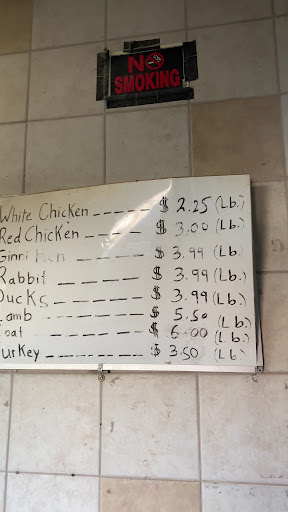 NO
SMOKING
White Chicken ----- $ 2.25 (Lb.)
Red Chicken ---- $ 3.00 (Lb.)
Ginri Hen ---- $ 3.99 (Lb.)
Rabbit ---- $ 3.99 (Lb.)
Ducks ---- $ 3.99 (Lb.)
amb ----- $ 5.50 (Lb.)
oat ----- $ 6.00 (Lb.)
urkey ---- $ 3.50 (Lb.)